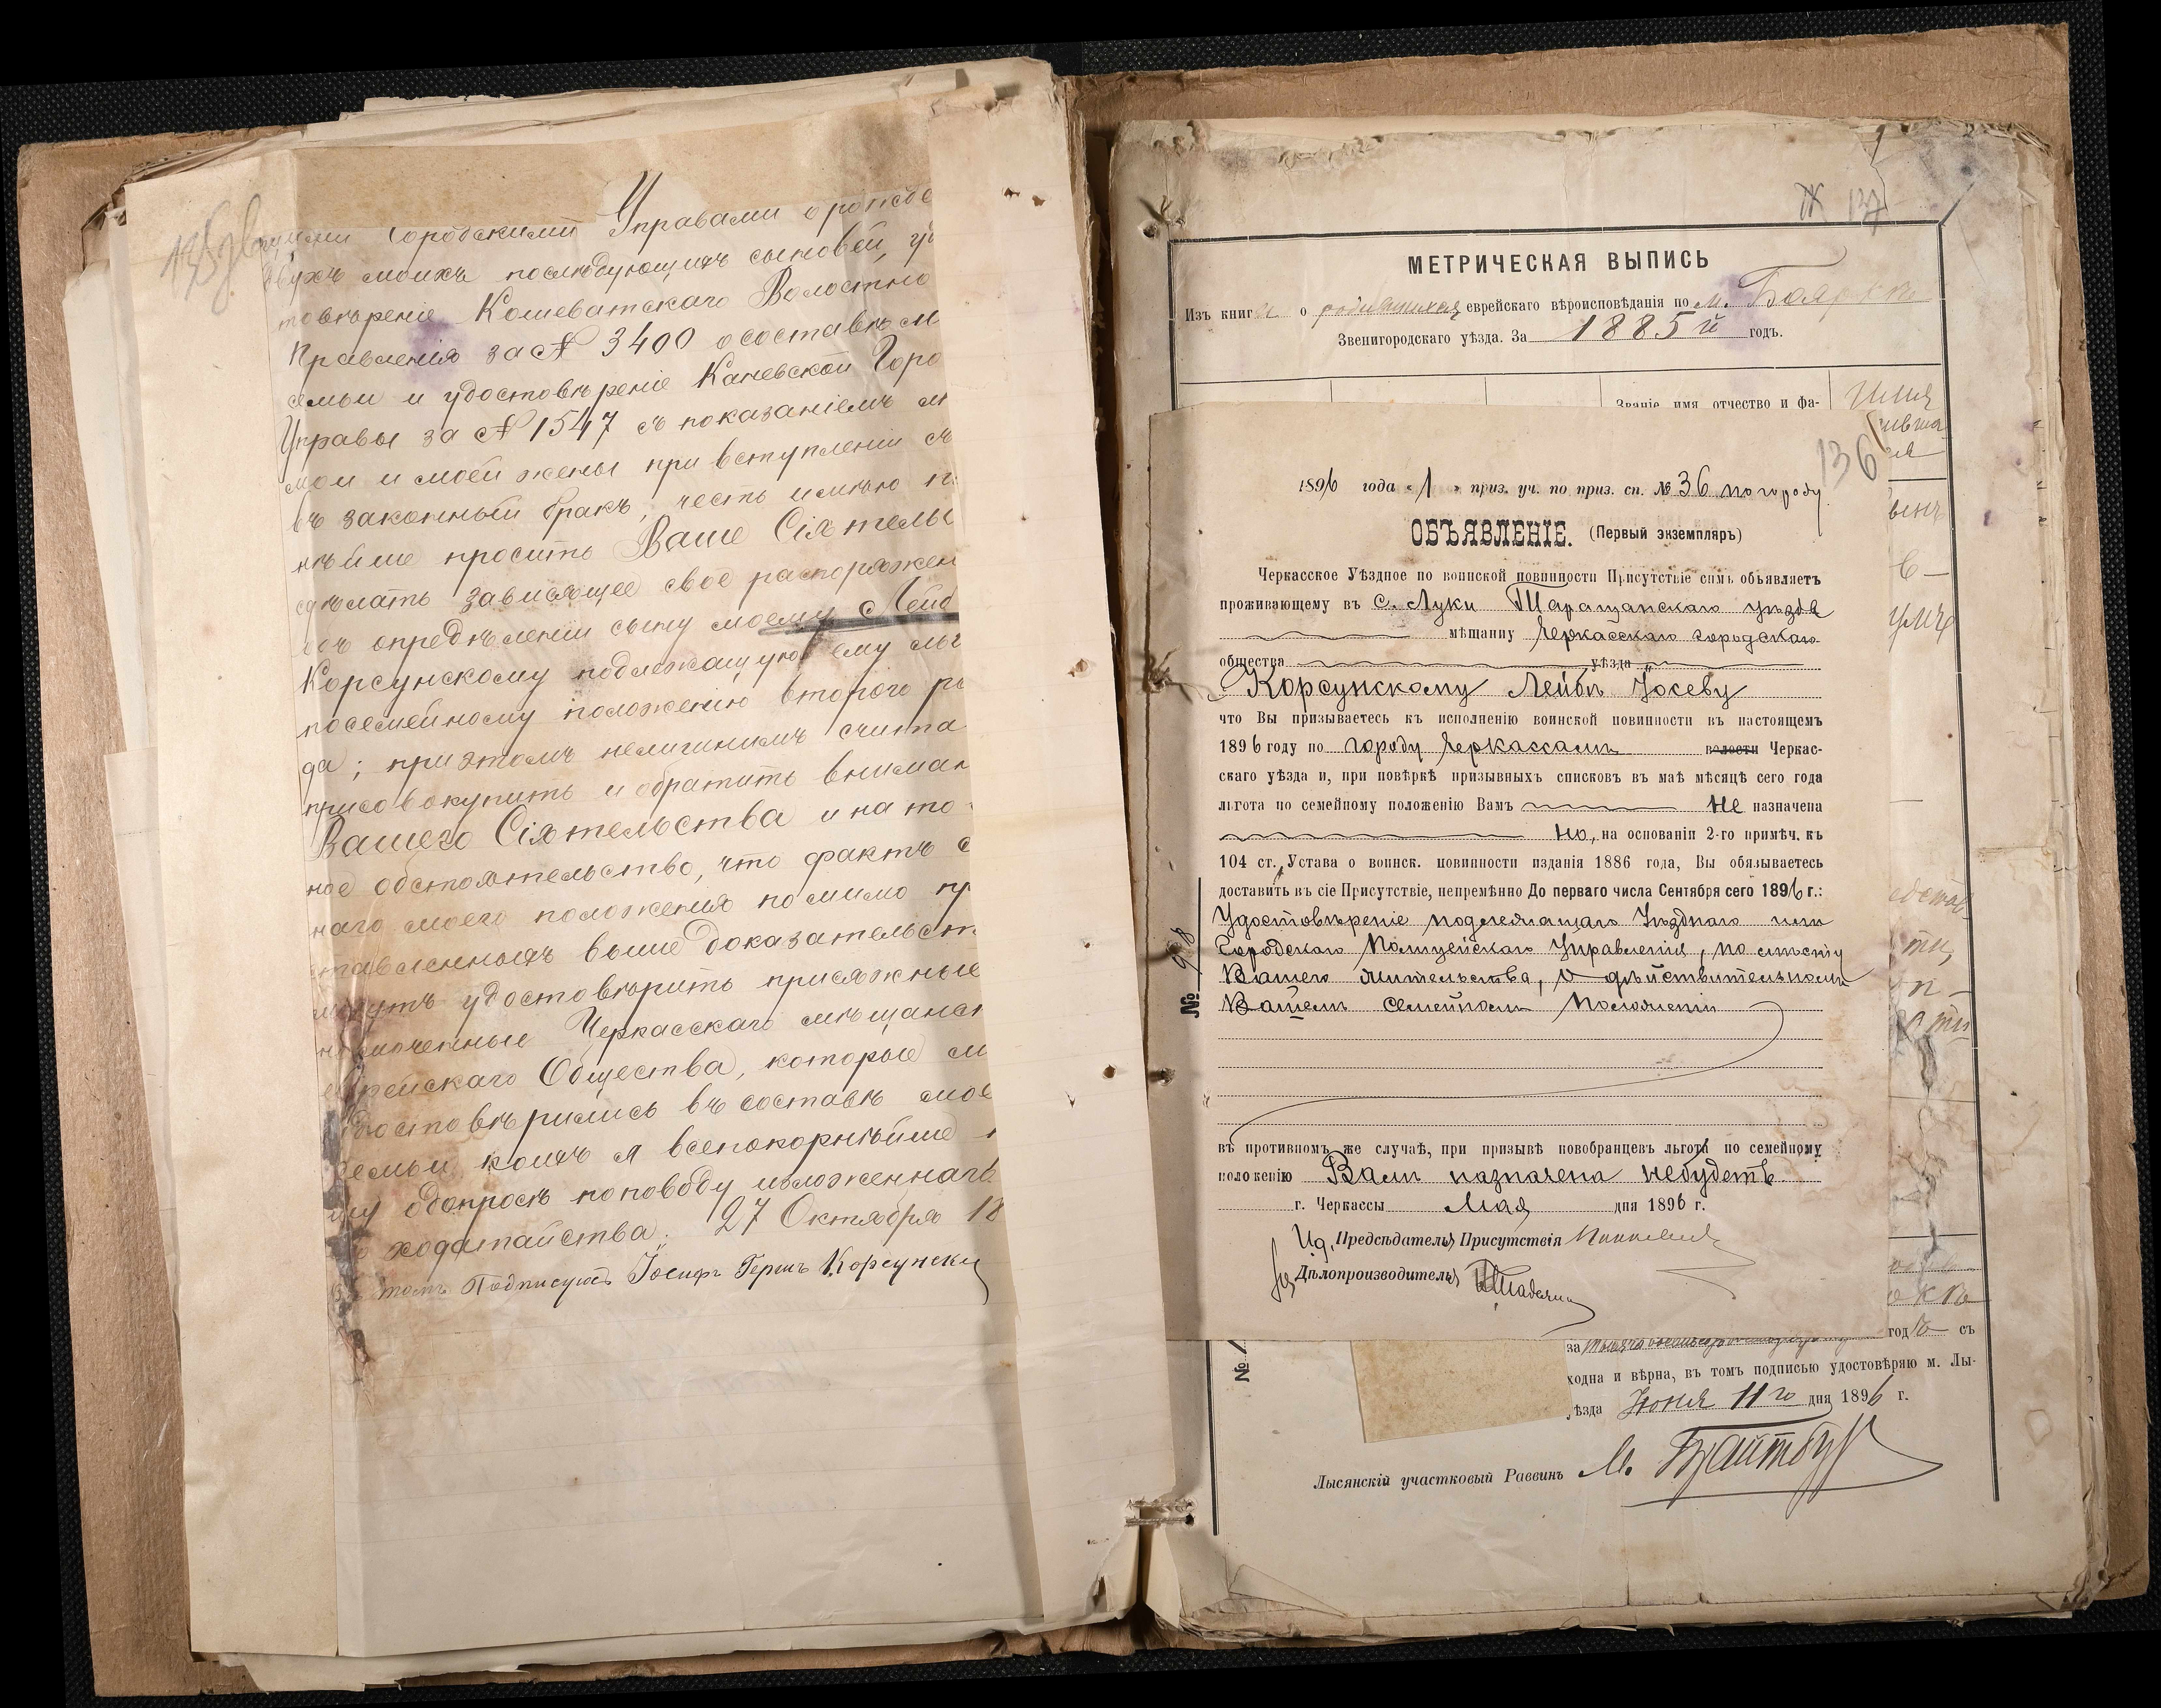 135 об
Городскими Управами о рожде
двухъ моихъ последующихъ сыновей, уд
товѣреніе Кошеватскаго Волостно
Правленія за № 3400 о составѣ м
семьи и удостовѣреніе Каневской Горо
Управы за № 1547 съ показаніемъ л
мои и моей жены при вступленіи въ
въ законный бракъ, честь имѣю п
нѣйше просить Ваше Сіятельс
сдѣлать зависящее свое распоряжен
объ опредѣленіи сыну моему Лейб
Корсунскому подлежащую ему льг
посемейному положенію второго ра
да; при этомъ нелишнимъ счита
присовокупить и обратить вниман
Вашего Сіятельства и на то
ное обстоятельство, что фактъ с
наго моего положенія помимо пр
ставленныхъ выше доказательст
могутъ удостовѣрить присяжные
Черкасскаго мѣщанс
еврейскаго Общества, которые
удостовѣрились въ составѣ мое
семьи коихъ я всепокорнѣйше
о допросѣ по поводу изложеннаго
ходатайства. 27 Октября 18
въ томъ Подписуюсь Іосифъ Гершъ Корсунский
137
МЕТРИЧЕСКАЯ ВЫПИСЬ
Изъ книги о родившихся еврейскаго вѣроисповѣданія по м. Боярки
Звенигородскаго уѣзда. За 1885й годъ.
Званіе имя отчество и фа-
136
1896 года « 1 » приз. уч. по приз. сп. № 36 по городу
ОБЪЯВЛЕНІЕ. (Первый экземпляръ)
Черкасское Уѣздное по воинской повинности Присутствіе симъ объявляетъ
проживающему въ с. Луки Таращанскаго уѣзда
мѣщанину Черкасскаго городскаго
общества уѣзда
Корсунскому Лейбѣ Іосеву
что Вы призываетесь къ исполненію воинской повинности въ настоящемъ
1896 году по городу Черкассамъ волости Черкас-
скаго уѣзда и, при повѣркѣ призывныхъ списковъ въ маѣ мѣсяцѣ сего года
льгота по семейному положенію Вамъ не назначена
но, на основаніи 2-го примѣч. къ
104 ст. Устава о воинск. повинности изданія 1886 года, Вы обязываетесь
доставить въ сіе Присутствіе, непремѣнно До перваго числа Сентября сего 1896 г.:
Удостовѣреніе подлежащаго Уѣзднаго или
Городскаго Полицейскаго Управленія, по мѣсту
Вашего жительства, о дѣйствительномъ
Вашемъ семейномъ положеніи
въ противномъ же случаѣ, при призывѣ новобранцевъ льгота по семейному
положенію Вамъ назначена небудетъ
г. Черкассы Мая дня 1896 г.
И.д. Предсѣдателя Присутствія
Дѣлопроизводитель
№ 98
№
годъ съ
ходна и вѣрна, въ томъ подписью удостовѣряю м. Лы-
ѣзда Іюня 11го дня 1896 г.
Лысянскій участковый Раввинъ М. Брайтбур